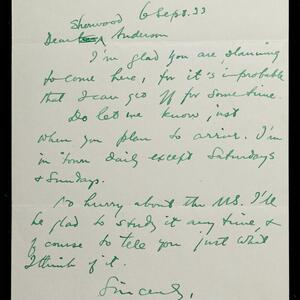 6 Sept. 33
Sherwood
Dear Anderson
I'm glad you are planning
to come here, for it is improbable
that I can get off for some time.
Do let me know just
when you plan to arrive. I'm
in town daily except Saturdays
& Sundays.
No hurry about the MS. I'll
be glad to study it any time, &
of course to tell you just what
I think of it.
Sincerely,